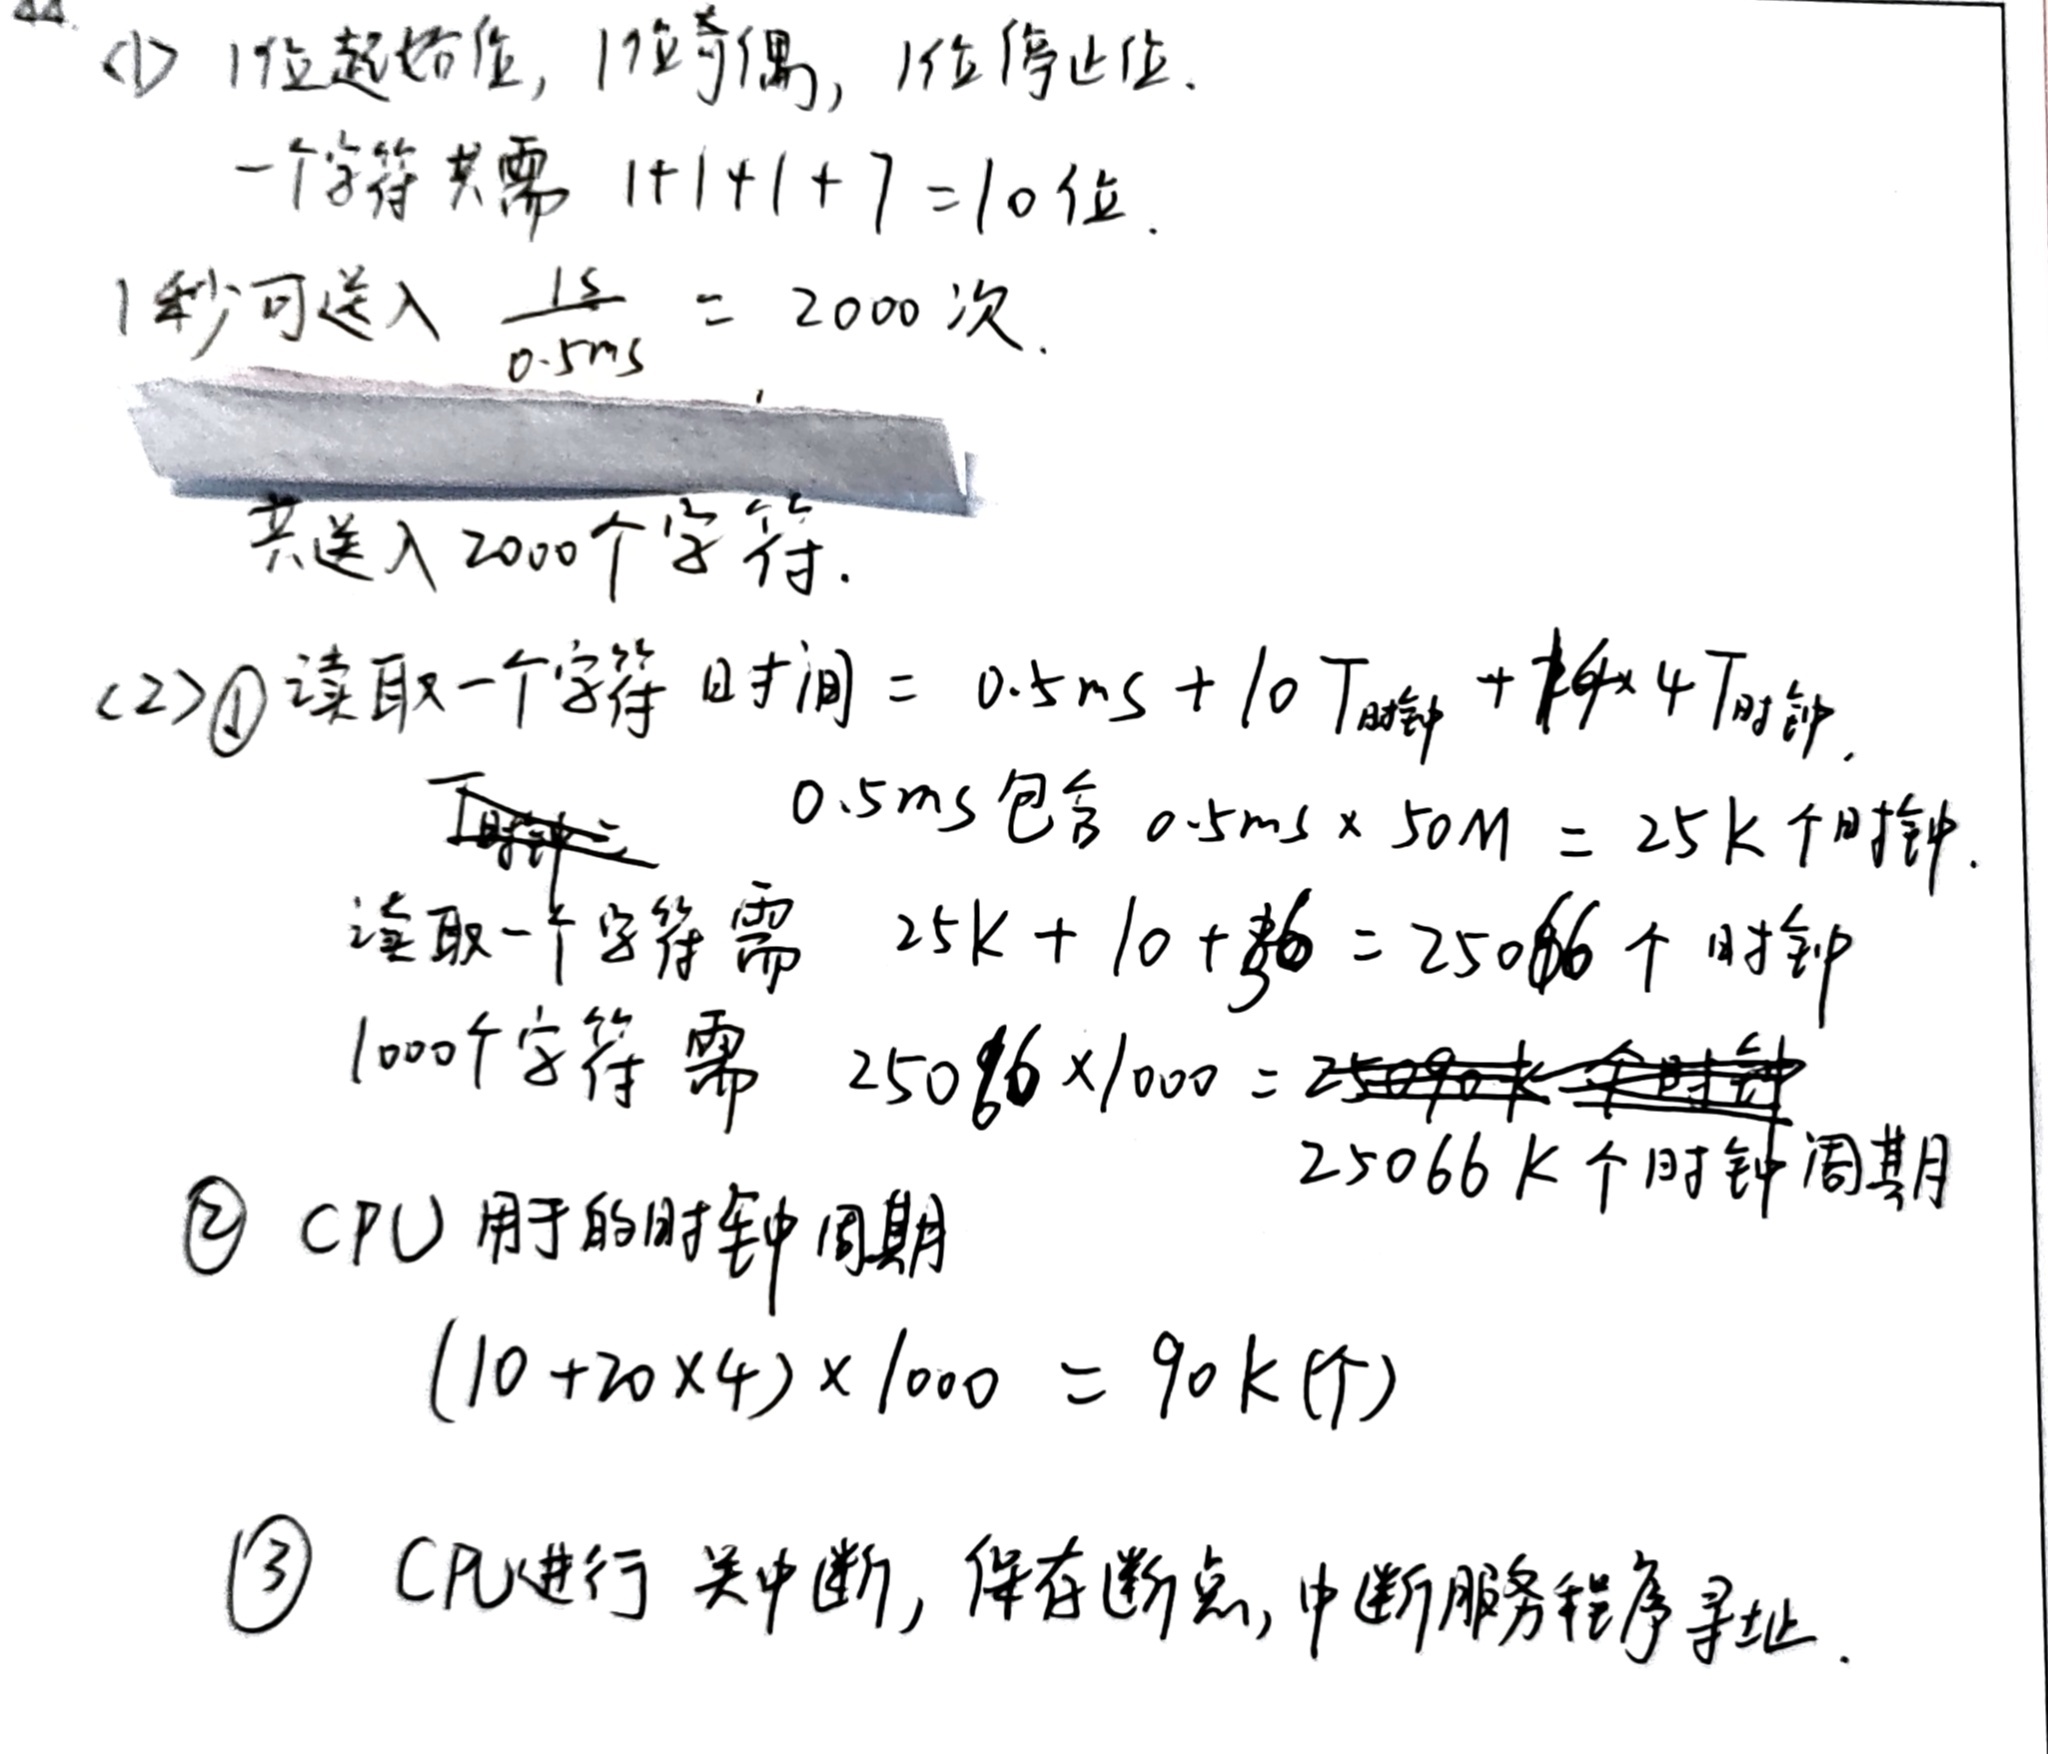 44.
<1> 1位起始位, 1位奇偶, 1位停止位.
一个字符共需 1+1+1+7=10位.
1秒可送入 1s/0.5ms = 2000次.
共送入2000个字符.
<2>① 读取一个字符时间 = 0.5ms + 10 T时钟 + 14×4T时钟.
0.5ms包含 0.5ms×50M = 25K个时钟.
读取一个字符需 25K+10+56=25066个时钟
1000个字符需 25066×1000=
25066K个时钟周期
② CPU用于的时钟周期
(10+20×4)×1000 = 90K(个)
③ CPU进行 关中断, 保存断点, 中断服务程序寻址.